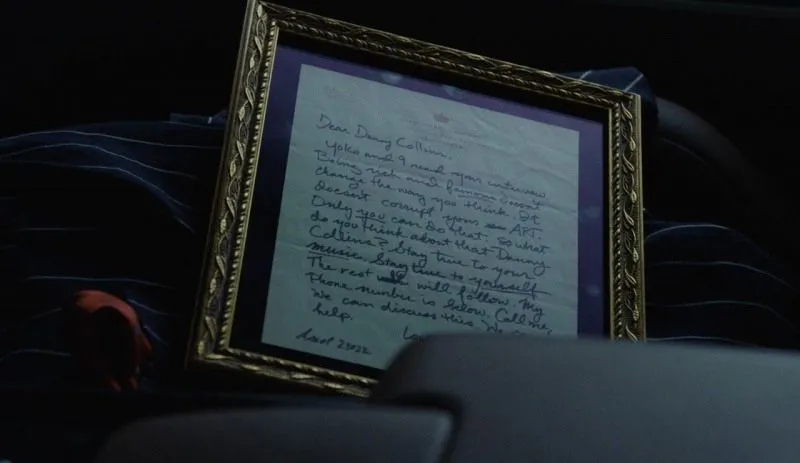 Dear Danny Collins,
Yoko and I read your interview.
Being rich and famous doesn't
change the way you think. It
doesn't corrupt your ART.
Only you can do that. So what
do you think about that Danny
Collins? Stay true to your
music. Stay true to yourself
The rest will follow. My
Phone number is below. Call me,
We can discuss this. We can
help.
Ascot 23022